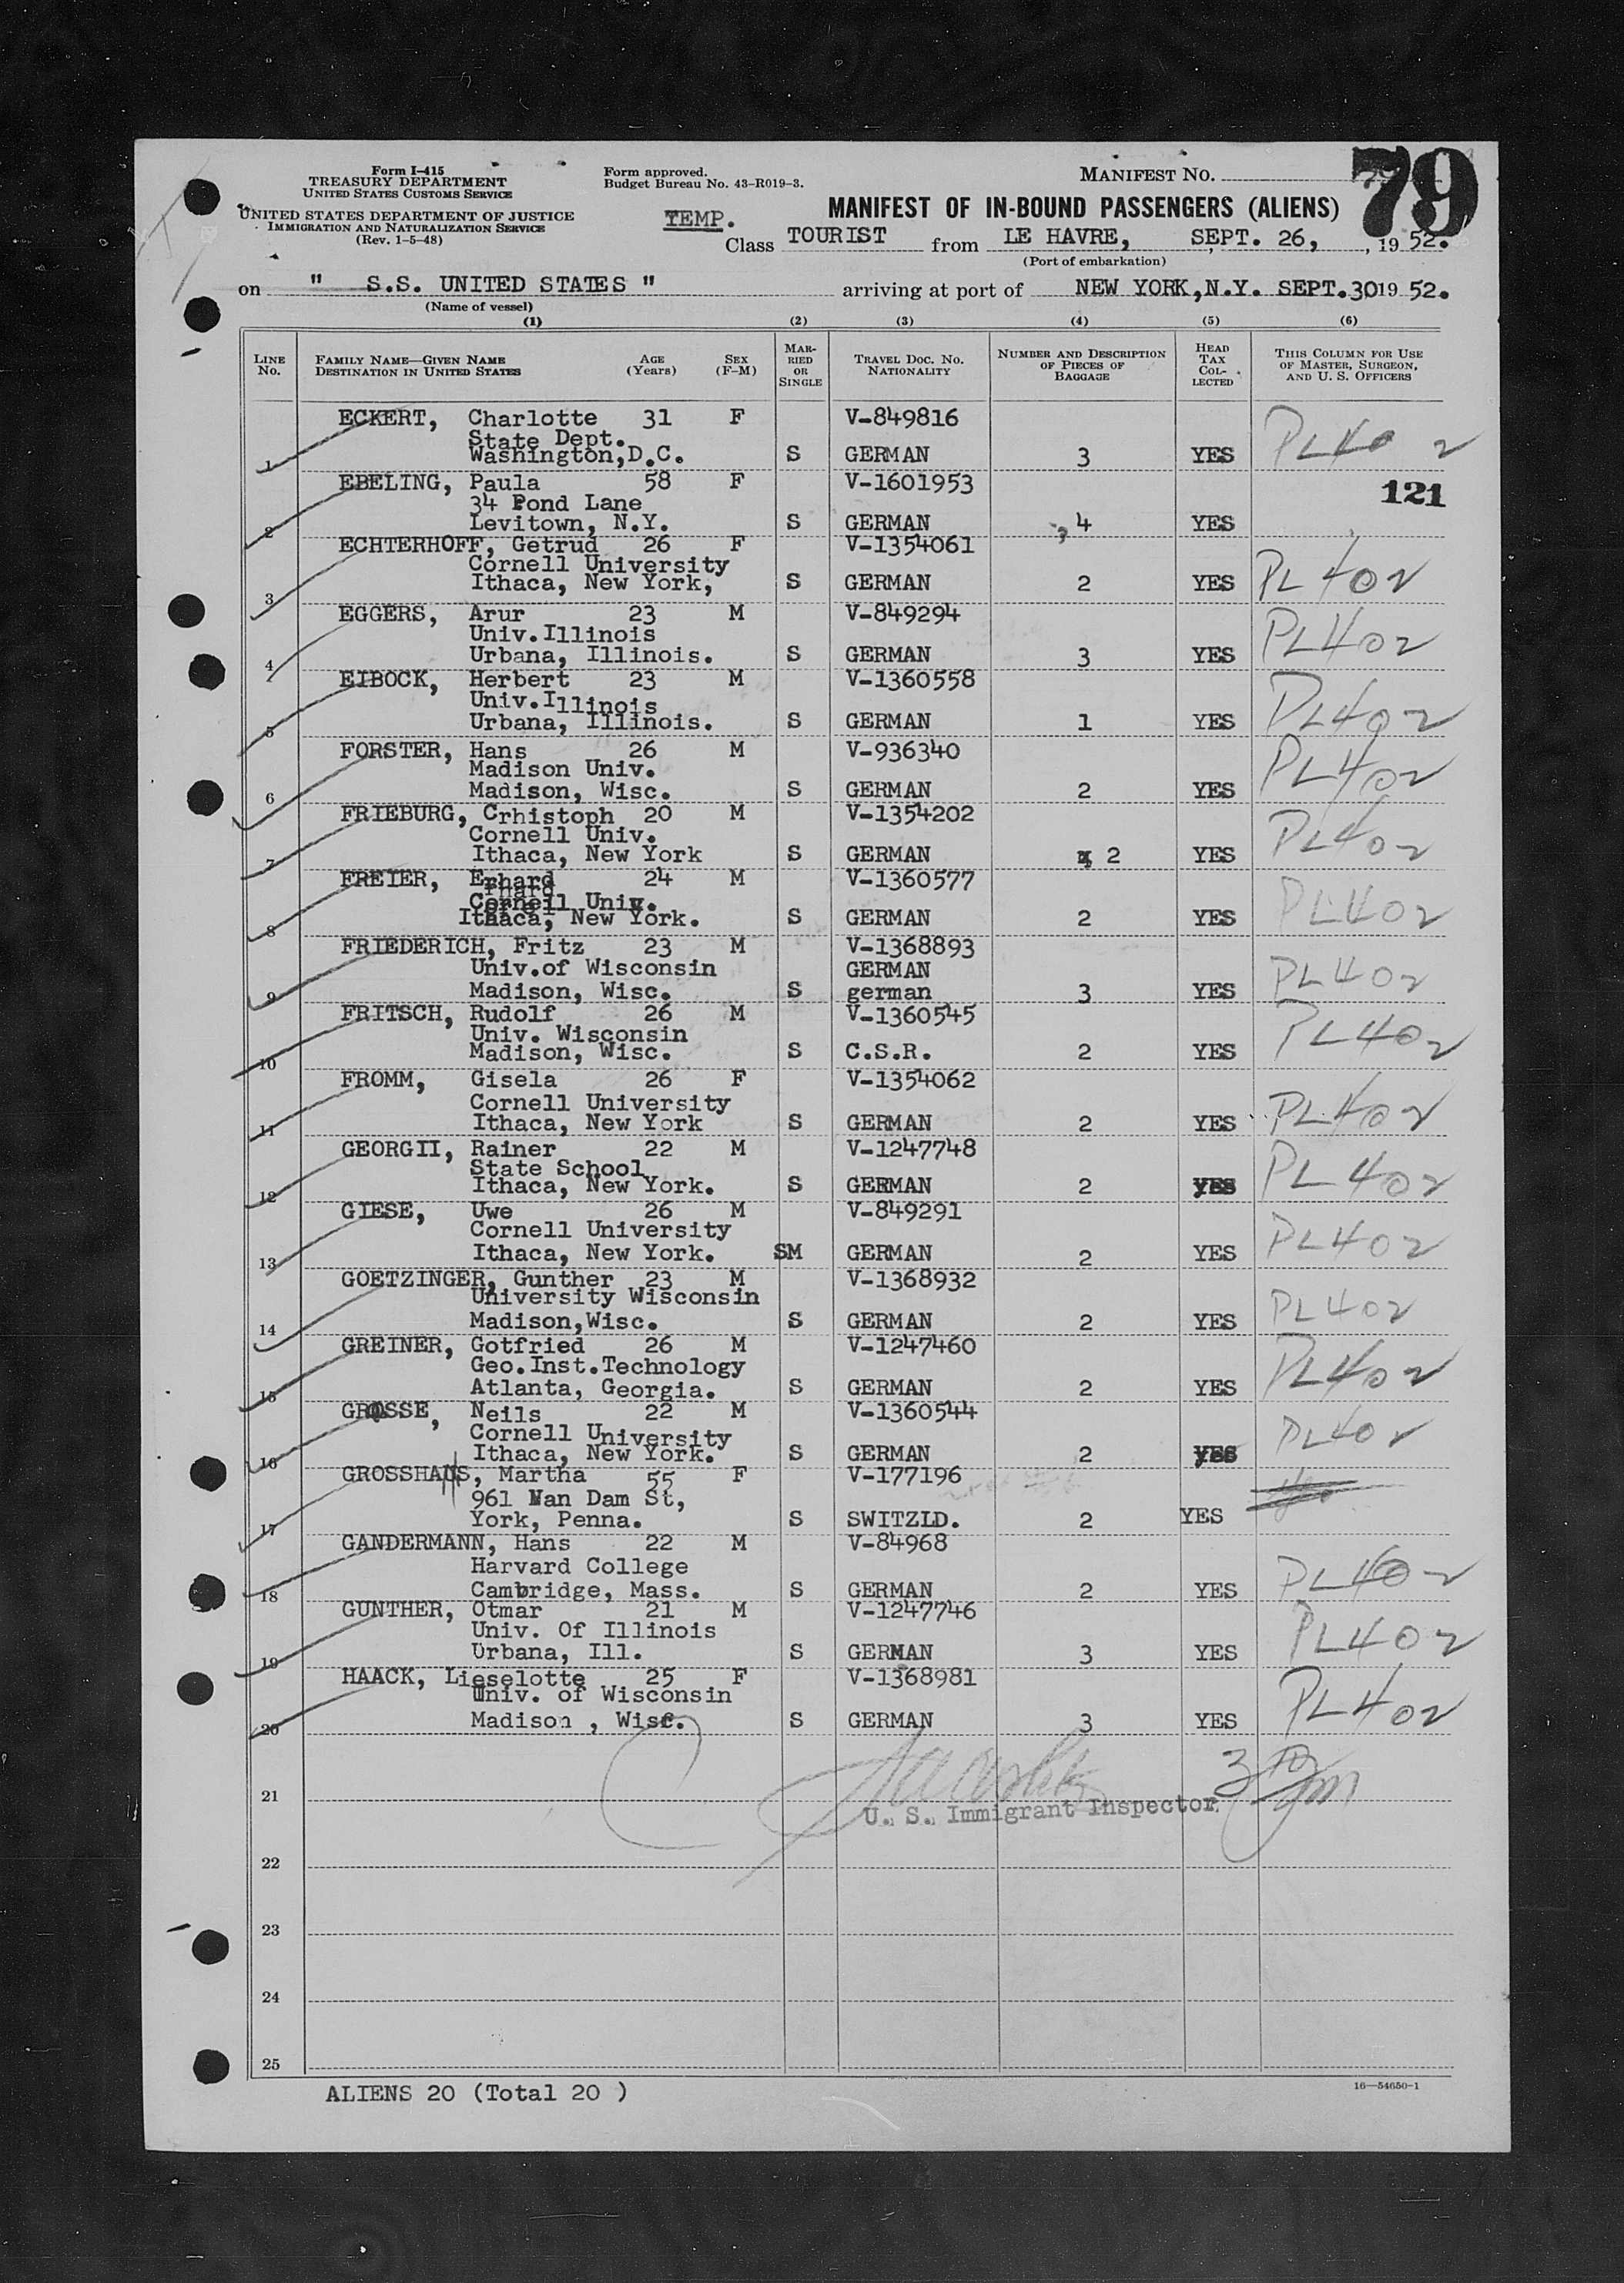 Form I-415
TREASURY DEPARTMENT
UNITED STATES CUSTOMS SERVICE
UNITED STATES DEPARTMENT OF JUSTICE
IMMIGRATION AND NATURALIZATION SERVICE
(Rev. 1-5-48)
Form approved.
Budget Bureau No. 43-R019-3.
MANIFEST NO.
79
MANIFEST OF IN-BOUND PASSENGERS (ALIENS)
TEMP.
Class TOURIST from LE HAVRE, SEPT. 26, , 19 52.
(Port of embarkation)
on " S.S. UNITED STATES " arriving at port of NEW YORK,N.Y. SEPT.30 19 52.
(Name of vessel)
(1) (2) (3) (4) (5) (6)
LINE NO. FAMILY NAME—GIVEN NAME DESTINATION IN UNITED STATES AGE (Years) SEX (F-M) MARRIED OR SINGLE TRAVEL DOC. NO. NATIONALITY NUMBER AND DESCRIPTION OF PIECES OF BAGGAGE HEAD TAX COLLECTED THIS COLUMN FOR USE OF MASTER, SURGEON, AND U. S. OFFICERS
ECKERT, Charlotte 31 F V-849816
State Dept.
1 Washington,D.C. S GERMAN 3 YES PL 40 2
EBELING, Paula 58 F V-1601953 121
34 Pond Lane
2 Levitown, N.Y. S GERMAN 4 YES
ECHTERHOFF, Getrud 26 F V-1354061
Cornell University
3 Ithaca, New York, S GERMAN 2 YES PL 402
EGGERS, Arur 23 M V-849294
Univ.Illinois
4 Urbana, Illinois. S GERMAN 3 YES PL402
EIBOCK, Herbert 23 M V-1360558
Univ.Illinois
5 Urbana, Illinois. S GERMAN 1 YES PL402
FORSTER, Hans 26 M V-936340
Madison Univ.
6 Madison, Wisc. S GERMAN 2 YES PL402
FRIEBURG, Crhistoph 20 M V-1354202
Cornell Univ.
7 Ithaca, New York S GERMAN 2 YES PL402
FREIER, Erhard 24 M V-1360577
Cornell Univ.
8 Ithaca, New York. S GERMAN 2 YES PL402
FRIEDERICH, Fritz 23 M V-1368893
Univ.of Wisconsin GERMAN
9 Madison, Wisc. S german 3 YES PL402
FRITSCH, Rudolf 26 M V-1360545
Univ. Wisconsin
10 Madison, Wisc. S C.S.R. 2 YES PL402
FROMM, Gisela 26 F V-1354062
Cornell University
11 Ithaca, New York S GERMAN 2 YES PL402
GEORGII, Rainer 22 M V-1247748
State School
12 Ithaca, New York. S GERMAN 2 YES PL 402
GIESE, Uwe 26 M V-849291
Cornell University
13 Ithaca, New York. SM GERMAN 2 YES PL402
GOETZINGER, Gunther 23 M V-1368932
University Wisconsin
14 Madison,Wisc. S GERMAN 2 YES PL402
GREINER, Gotfried 26 M V-1247460
Geo.Inst.Technology
15 Atlanta, Georgia. S GERMAN 2 YES PL402
GROSSE, Neils 22 M V-1360544
Cornell University
16 Ithaca, New York. S GERMAN 2 YES PL402
GROSSHAUS, Martha 55 F V-177196
961 Van Dam St,
17 York, Penna. S SWITZLD. 2 YES
GANDERMANN, Hans 22 M V-84968
Harvard College
18 Cambridge, Mass. S GERMAN 2 YES PL402
GUNTHER, Otmar 21 M V-1247746
Univ. Of Illinois
19 Urbana, Ill. S GERMAN 3 YES PL402
HAACK, Lieselotte 25 F V-1368981
Univ. of Wisconsin
20 Madison , Wisc. S GERMAN 3 YES PL402
21
U. S. Immigrant Inspector
22
23
24
25
ALIENS 20 (Total 20 )
16—54650-1